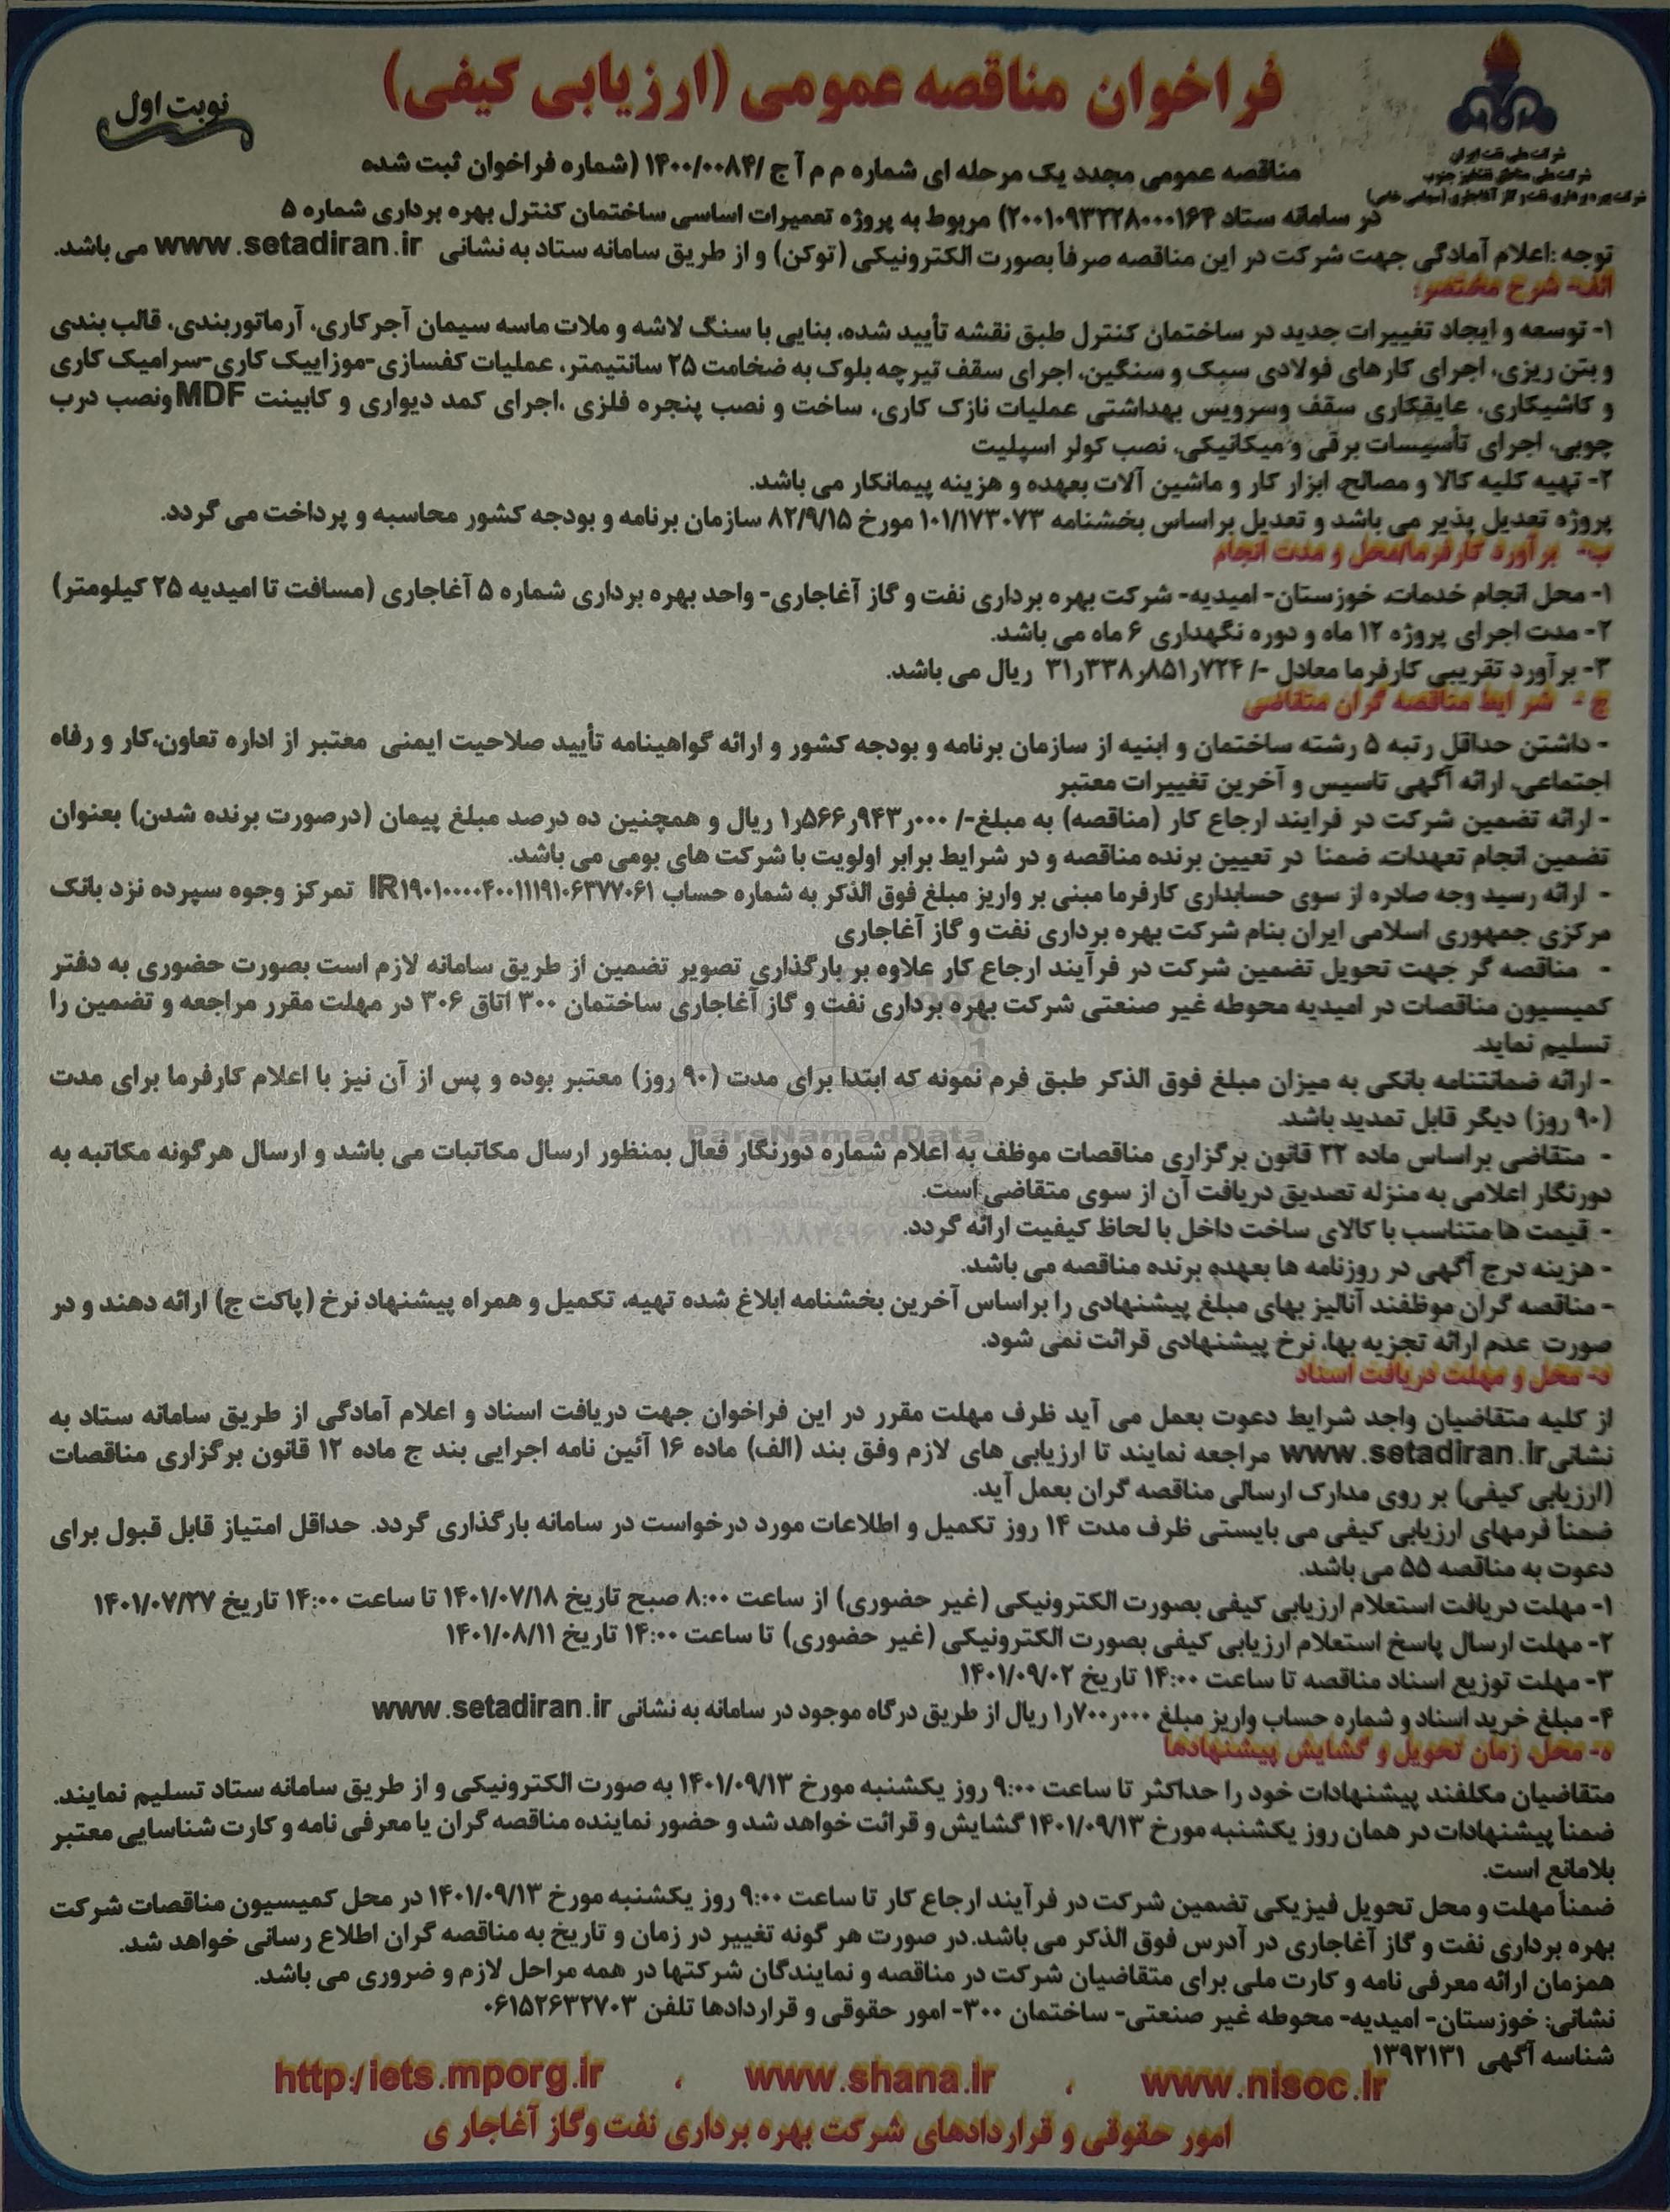 فراخوان مناقصه عمومی (ارزیابی کیفی)
نوبت اول
شرکت ملی نفت ایران
شرکت ملی مناطق نفتخیز جنوب
شرکت بهره برداری نفت و گاز آغاجاری (سهامی خاص)
مناقصه عمومی مجدد یک مرحله ای شماره م م آ ج /۱۴۰۰/۰۰۸۴ (شماره فراخوان ثبت شده
در سامانه ستاد ۲۰۰۱۰۹۳۲۲۸۰۰۰۱۶۴) مربوط به پروژه تعمیرات اساسی ساختمان کنترل بهره برداری شماره ۵
توجه :اعلام آمادگی جهت شرکت در این مناقصه صرفاً بصورت الکترونیکی (توکن) و از طریق سامانه ستاد به نشانی www.setadiran.ir می باشد.
الف- شرح مختصر:
۱- توسعه و ایجاد تغییرات جدید در ساختمان کنترل طبق نقشه تأیید شده، بنایی با سنگ لاشه و ملات ماسه سیمان آجرکاری، آرماتوربندی، قالب بندی
و بتن ریزی، اجرای کارهای فولادی سبک و سنگین، اجرای سقف تیرچه بلوک به ضخامت ۲۵ سانتیمتر، عملیات کفسازی-موزاییک کاری-سرامیک کاری
و کاشیکاری، عایقکاری سقف وسرویس بهداشتی عملیات نازک کاری، ساخت و نصب پنجره فلزی ،اجرای کمد دیواری و کابینت MDF ونصب درب
چوبی، اجرای تأسیسات برقی و میکانیکی، نصب کولر اسپلیت
۲- تهیه کلیه کالا و مصالح، ابزار کار و ماشین آلات بعهده و هزینه پیمانکار می باشد.
پروژه تعدیل پذیر می باشد و تعدیل بر اساس بخشنامه ۱۰۱/۱۷۳۰۷۳ مورخ ۸۲/۹/۱۵ سازمان برنامه و بودجه کشور محاسبه و پرداخت می گردد.
ب- برآورد کارفرما/محل و مدت انجام
۱- محل انجام خدمات، خوزستان- امیدیه- شرکت بهره برداری نفت و گاز آغاجاری- واحد بهره برداری شماره ۵ آغاجاری (مسافت تا امیدیه ۲۵ کیلومتر)
۲- مدت اجرای پروژه ۱۲ ماه و دوره نگهداری ۶ ماه می باشد.
۳- برآورد تقریبی کارفرما معادل -/ ۳۱٫۳۳۸٫۸۵۱٫۷۲۴ ریال می باشد.
ج - شرایط مناقصه گران متقاضی
- داشتن حداقل رتبه ۵ رشته ساختمان و ابنیه از سازمان برنامه و بودجه کشور و ارائه گواهینامه تأیید صلاحیت ایمنی معتبر از اداره تعاون،کار و رفاه
اجتماعی، ارائه آگهی تاسیس و آخرین تغییرات معتبر
- ارائه تضمین شرکت در فرایند ارجاع کار (مناقصه) به مبلغ-/ ۱٫۵۶۶٫۹۴۳٫۰۰۰ ریال و همچنین ده درصد مبلغ پیمان (درصورت برنده شدن) بعنوان
تضمین انجام تعهدات، ضمنا در تعیین برنده مناقصه و در شرایط برابر اولویت با شرکت های بومی می باشد.
- ارائه رسید وجه صادره از سوی حسابداری کارفرما مبنی بر واریز مبلغ فوق الذکر به شماره حساب IR۱۹۰۱۰۰۰۰۴۰۰۱۱۱۹۱۰۶۳۷۷۰۶۱ تمرکز وجوه سپرده نزد بانک
مرکزی جمهوری اسلامی ایران بنام شرکت بهره برداری نفت و گاز آغاجاری
- مناقصه گر جهت تحویل تضمین شرکت در فرآیند ارجاع کار علاوه بر بارگذاری تصویر تضمین از طریق سامانه لازم است بصورت حضوری به دفتر
کمیسیون مناقصات در امیدیه محوطه غیر صنعتی شرکت بهره برداری نفت و گاز آغاجاری ساختمان ۳۰۰ اتاق ۳۰۶ در مهلت مقرر مراجعه و تضمین را
تسلیم نماید.
- ارائه ضمانتنامه بانکی به میزان مبلغ فوق الذکر طبق فرم نمونه که ابتدا برای مدت (۹۰ روز) معتبر بوده و پس از آن نیز با اعلام کارفرما برای مدت
(۹۰ روز) دیگر قابل تمدید باشد.
ParsNamadData
- متقاضی بر اساس ماده ۲۲ قانون برگزاری مناقصات موظف به اعلام شماره دورنگار فعال بمنظور ارسال مکاتبات می باشد و ارسال هرگونه مکاتبه به
دورنگار اعلامی به منزله تصدیق دریافت آن از سوی متقاضی است.
- قیمت ها متناسب با کالای ساخت داخل با لحاظ کیفیت ارائه گردد.
- هزینه درج آگهی در روزنامه ها بعهده برنده مناقصه می باشد.
- مناقصه گران موظفند آنالیز بهای مبلغ پیشنهادی را براساس آخرین بخشنامه ابلاغ شده تهیه، تکمیل و همراه پیشنهاد نرخ (پاکت ج) ارائه دهند و در
صورت عدم ارائه تجزیه بها، نرخ پیشنهادی قرائت نمی شود.
د- محل و مهلت دریافت اسناد
از کلیه متقاضیان واجد شرایط دعوت بعمل می آید ظرف مهلت مقرر در این فراخوان جهت دریافت اسناد و اعلام آمادگی از طریق سامانه ستاد به
نشانی www.setadiran.ir مراجعه نمایند تا ارزیابی های لازم وفق بند (الف) ماده ۱۶ آئین نامه اجرایی بند ج ماده ۱۲ قانون برگزاری مناقصات
(ارزیابی کیفی) بر روی مدارک ارسالی مناقصه گران بعمل آید.
ضمناً فرمهای ارزیابی کیفی می بایستی ظرف مدت ۱۴ روز تکمیل و اطلاعات مورد درخواست در سامانه بارگذاری گردد. حداقل امتیاز قابل قبول برای
دعوت به مناقصه ۵۵ می باشد.
۱- مهلت دریافت استعلام ارزیابی کیفی بصورت الکترونیکی (غیر حضوری) از ساعت ۸:۰۰ صبح تاریخ ۱۴۰۱/۰۷/۱۸ تا ساعت ۱۴:۰۰ تاریخ ۱۴۰۱/۰۷/۲۷
۲- مهلت ارسال پاسخ استعلام ارزیابی کیفی بصورت الکترونیکی (غیر حضوری) تا ساعت ۱۴:۰۰ تاریخ ۱۴۰۱/۰۸/۱۱
۳- مهلت توزیع اسناد مناقصه تا ساعت ۱۴:۰۰ تاریخ ۱۴۰۱/۰۹/۰۲
۴- مبلغ خرید اسناد و شماره حساب واریز مبلغ ۱٫۷۰۰٫۰۰۰ ریال از طریق درگاه موجود در سامانه به نشانی www.setadiran.ir
ه- محل، زمان تحویل و گشایش پیشنهادها
متقاضیان مکلفند پیشنهادات خود را حداکثر تا ساعت ۹:۰۰ روز یکشنبه مورخ ۱۴۰۱/۰۹/۱۳ به صورت الکترونیکی و از طریق سامانه ستاد تسلیم نمایند.
ضمناً پیشنهادات در همان روز یکشنبه مورخ ۱۴۰۱/۰۹/۱۳ گشایش و قرائت خواهد شد و حضور نماینده مناقصه گران با معرفی نامه و کارت شناسایی معتبر
بلامانع است.
ضمناً مهلت و محل تحویل فیزیکی تضمین شرکت در فرآیند ارجاع کار تا ساعت ۹:۰۰ روز یکشنبه مورخ ۱۴۰۱/۰۹/۱۳ در محل کمیسیون مناقصات شرکت
بهره برداری نفت و گاز آغاجاری در آدرس فوق الذکر می باشد.در صورت هر گونه تغییر در زمان و تاریخ به مناقصه گران اطلاع رسانی خواهد شد.
همزمان ارائه معرفی نامه و کارت ملی برای متقاضیان شرکت در مناقصه و نمایندگان شرکتها در همه مراحل لازم و ضروری می باشد.
نشانی: خوزستان- امیدیه- محوطه غیر صنعتی- ساختمان ۳۰۰- امور حقوقی و قراردادها تلفن ۰۶۱۵۲۶۳۲۷۰۳
شناسه آگهی ۱۳۹۲۱۳۱
www.nisoc.ir ، www.shana.ir ، http:/iets.mporg.ir
امور حقوقی و قراردادهای شرکت بهره برداری نفت وگاز آغاجار ی